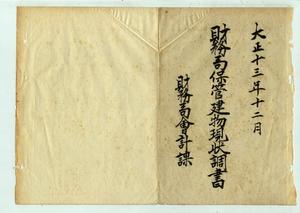 大正十三年十二月
財務局保管建物現狀調書
財務局會計課